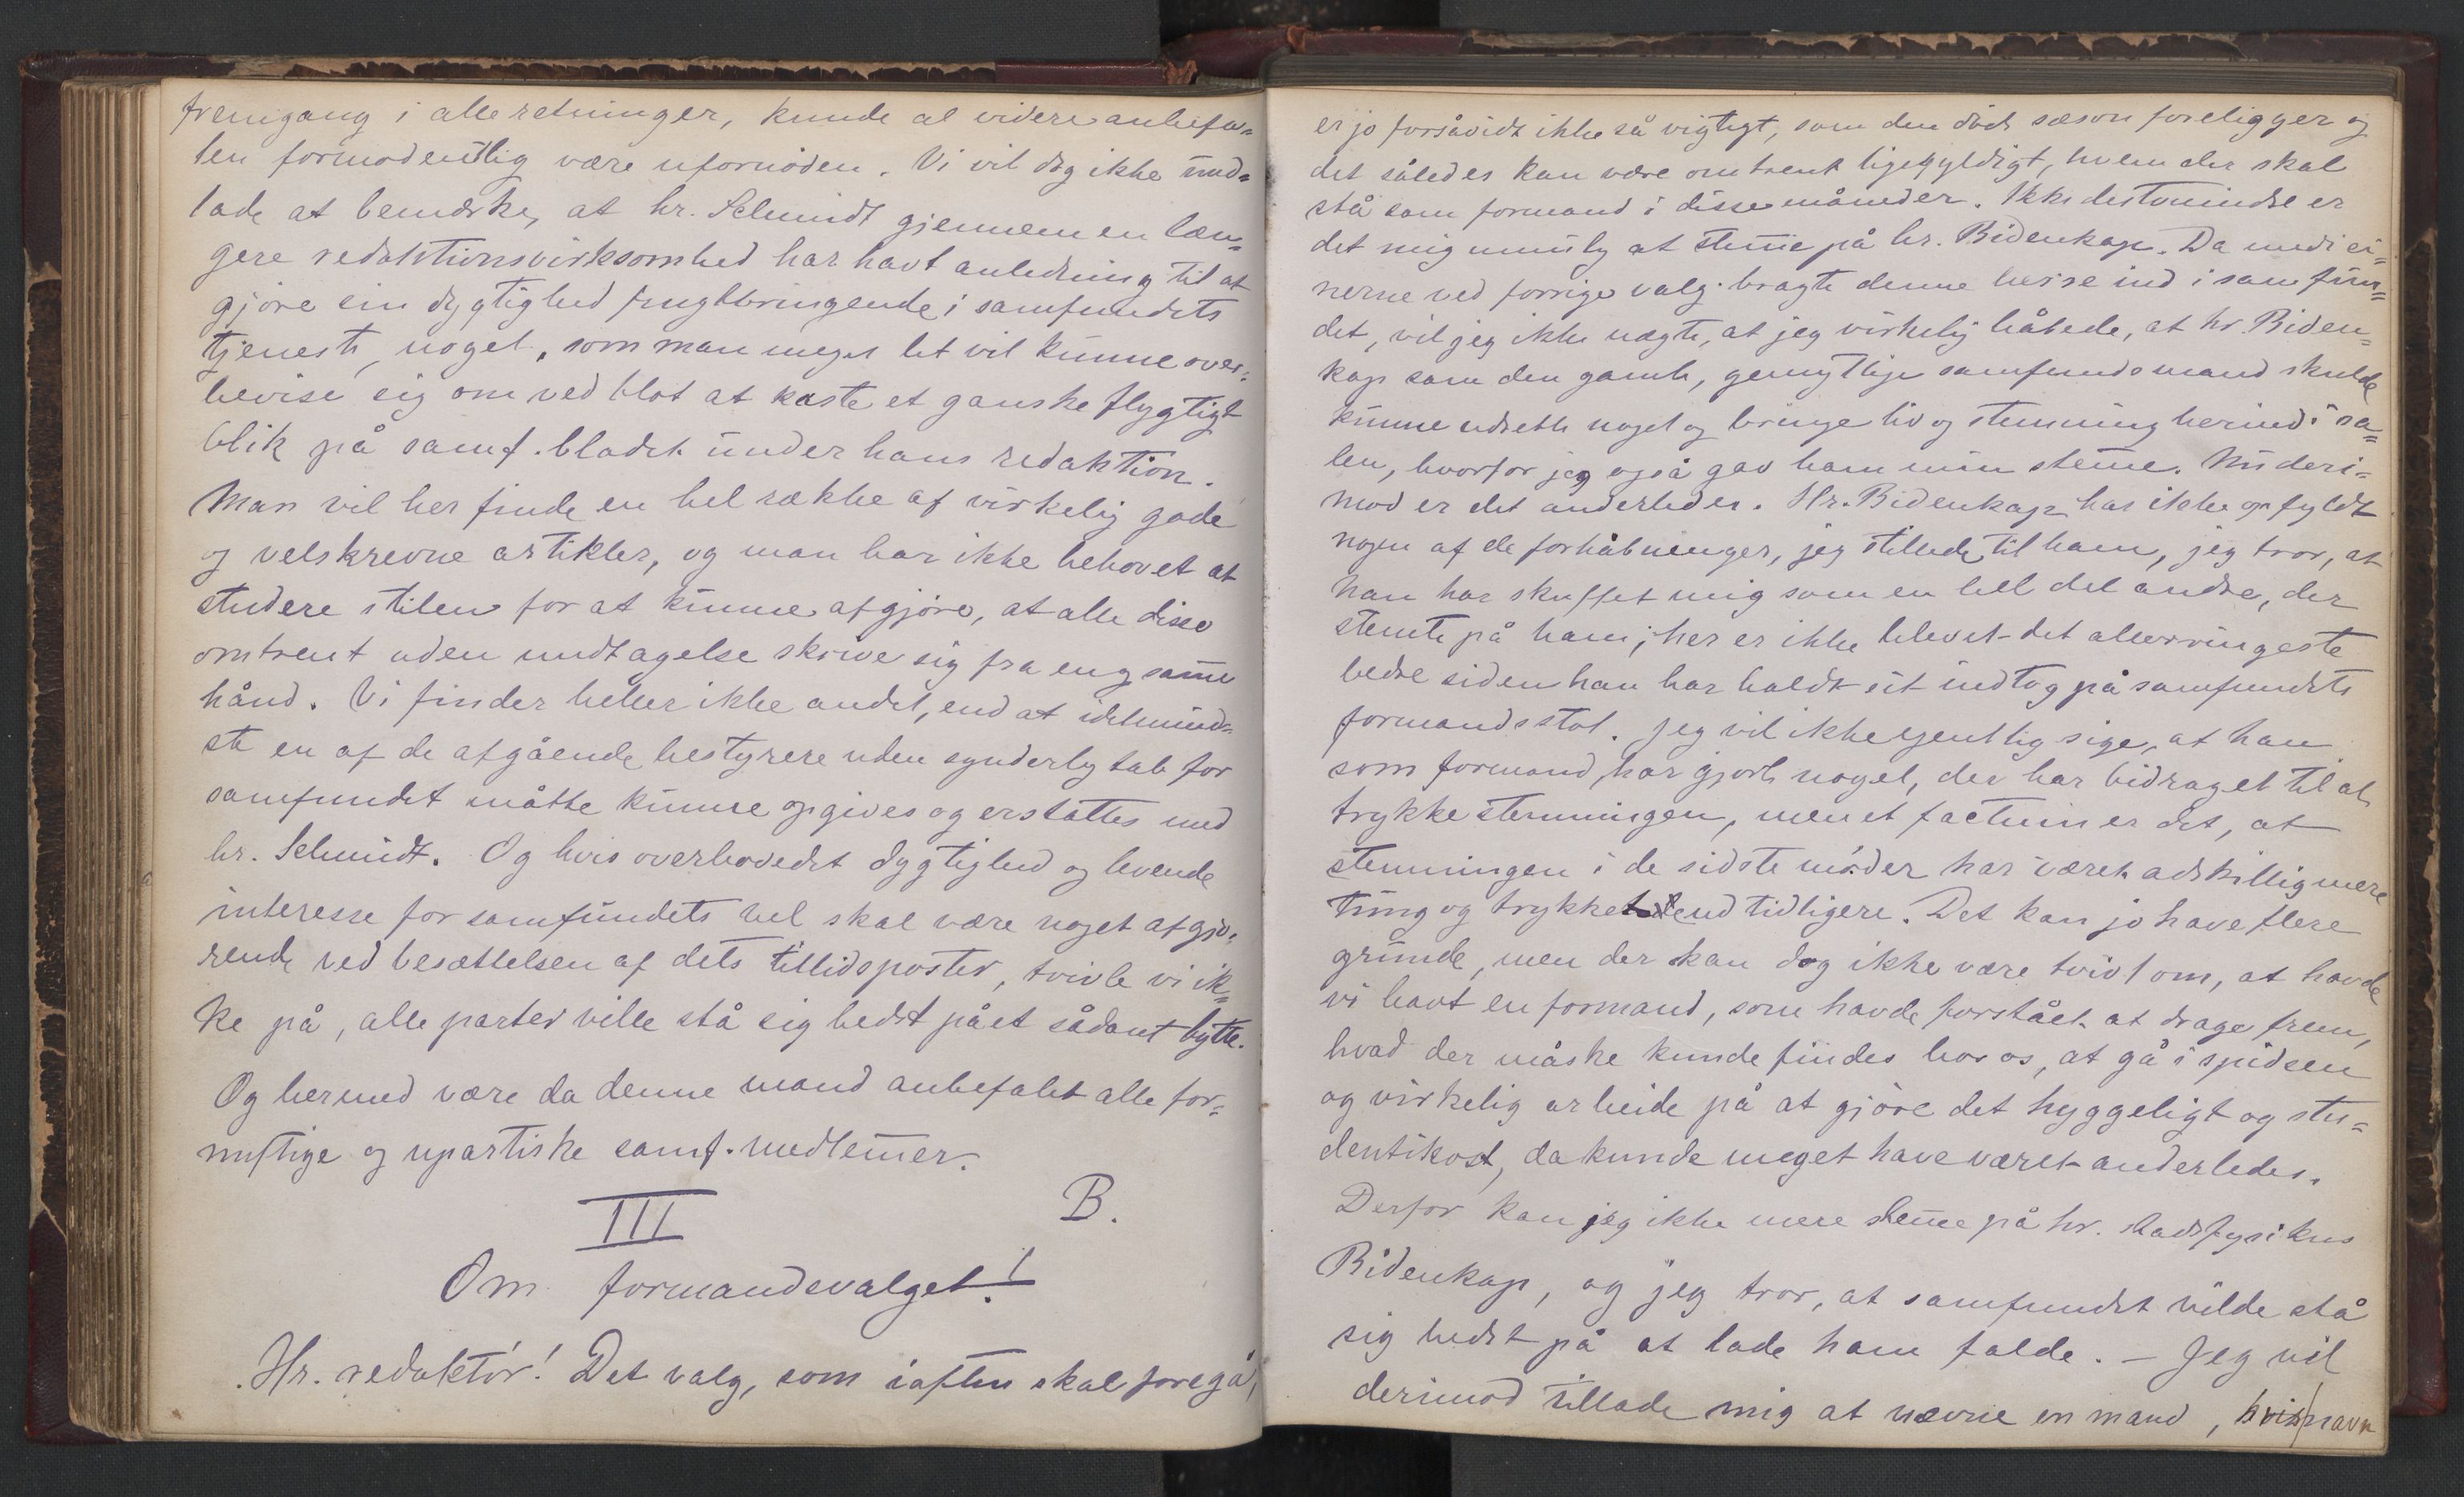 fremgang i alle retninger, kunde al videre anbefa-
len formodentlig være ufornöden. Vi vil dog ikke und-
lade at bemærke, at hr. Schmidt gjennem en læn-
gere redaktionsvirksomhed har havt anledning til at
gjöre sin dygtighed frugtbringende i samfundets
tjeneste, noget, som man meget let vil kunne over-
bevise sig om ved blot at kaste et ganske flygtigt
blik på samf.bladet under hans redaktion.
Man vil her finde en hel række af virkelig gode
og velskrevne artikler, og man har ikke behovet at
studere stilen for at kunne afgjöre, at alle disse
omtrent uden undtagelse skrive sig fra en og samme
hånd. Vi finder heller ikke andet, end at idetmind-
ste en af de afgående bestyrere uden synderlig tab for
samfundet måtte kunne opgives og erstattes med
hr. Schmidt. Og hvis overhovedet dygtighed og levende
interesse for samfundets vel skal være noget afgjö-
rende ved besættelsen af dets tillidsposter, tvivle vi ik-
ke på, alle parter ville stå sig bedst på et sådant bytte.
Og hermed være da denne mand anbefalet alle for-
nuftige og upartiske samf.medlemer.
B.
III
Om formandsvalget!
Hr. redaktör! Det valg, som iaften skal foregå,
er jo forsåvidt ikke så vigtigt, som den döde sæson foreligger og
det således kan være omtrent ligegyldigt, hvem der skal
stå som formand i disse måneder. Ikke destomindre er
det mig umulig at stemme på hr. Bidenkap. Da medici-
nerne ved forrige valg bragte denne herre ind i samfun-
det, vil jeg ikke nægte, at jeg virkelig håbede, at hr. Biden-
kap som den gamle, gemytlige samfundsmand skulde
kunne udrette noget og bringe liv og stemning herind i sa-
len, hvorfor jeg også gav ham min stemme. Nu deri-
mod er det anderledes. Hr. Bidenkap har ikke opfyldt
nogen af de forhåbninger, jeg stillede til ham, jeg tror, at
han har skuffet mig som en hel del andre, der
stemte på ham; her er ikke blevet det allerringeste
bedre siden han har holdt sit indtog på samfundets
formandsstol. Jeg vil ikke egentlig sige, at han
som formand har gjort noget, der har bidraget til at
trykke stemningen, men et factum er det, at
stemningen i de sidste möder har været adskillig mere
tung og trykket end tidligere. Det kan jo have flere
grunde, men der kan dog ikke være tvivl om, at havde
vi havt en formand, som havde forstået at drage frem,
hvad der måske kunde findes hos os, at gå i spidsen
og virkelig arbeide på at gjöre det hyggeligt og stu-
dentikost, da kunde meget have været anderledes.
Derfor kan jeg ikke mere stemme på hr. stadsfysikus
Bidenkap, og jeg tror, at samfundet vilde stå
sig bedst på at lade ham falde. — Jeg vil
derimod tillade mig at nævne en mand, hvis navn